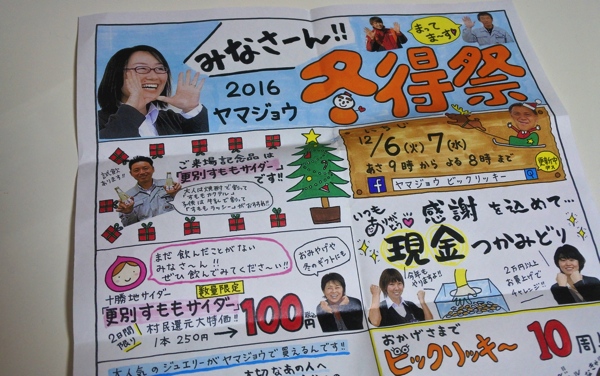 みなさーん!!
まってま〜す♪
2016
ヤマジョウ
冬得祭
12/6(火)7(水)
あさ9時からよる8時まで
更新中
ヤマジョウ ビックリッキー
試飲あります!!
ご来場記念品は
「更別すももサイダー」
です!!
大人は焼酎で割って
「すももカクテル」
いつもありがとう
感謝を込めて…
現金つかみどり
今年もやりますよ!!
2万円以上
お買上げで
チャレンジ!!
まだ飲んだことがない
みなさーん!!
ぜひ飲んでみてくださーい!!
おみやげや
冬のギフトにも
十勝地サイダー
数量限定
「更別すももサイダー」
2日間限り
村民還元大特価!!
1本250円→100円
おかげさまで
ビックリッキー 10周
大人気のジュエリーがヤマジョウで買えるんです!!
大切なあの人へ